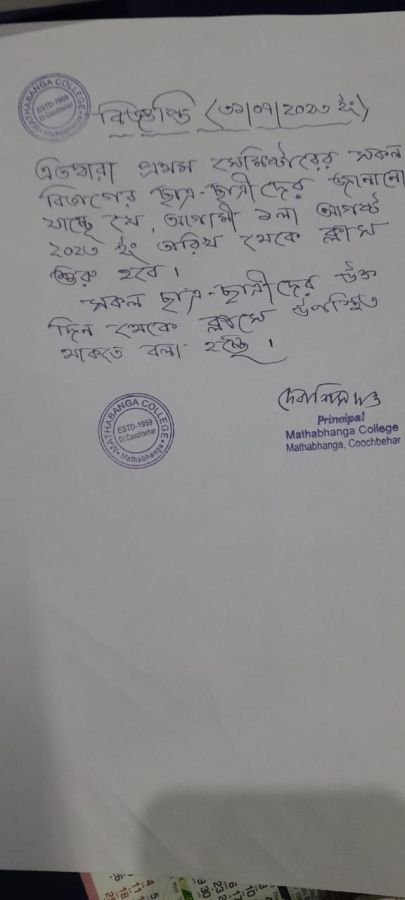 MATHABANGA COLLEGE
ESTD-1959
Dt. Coochbehar
Mathabhanga
বিজ্ঞপ্তি (৩১/০৭/২০২৩ ইং)
এতদ্বারা প্রথম সেমিষ্টারের সকল
বিভাগের ছাত্র-ছাত্রীদের জানানো
যাচ্ছে যে, আগামী ১লা আগষ্ট
২০২৩ ইং তারিখ থেকে ক্লাস
শুরু হবে।
সকল ছাত্র-ছাত্রীদের উক্ত
দিন থেকে ক্লাসে উপস্থিত
থাকতে বলা হচ্ছে।
MATHABANGA COLLEGE
ESTD-1959
Dt. Coochbehar
Mathabhanga
দেবাশিস দত্ত
Principal
Mathabhanga College
Mathabhanga, Coochbehar